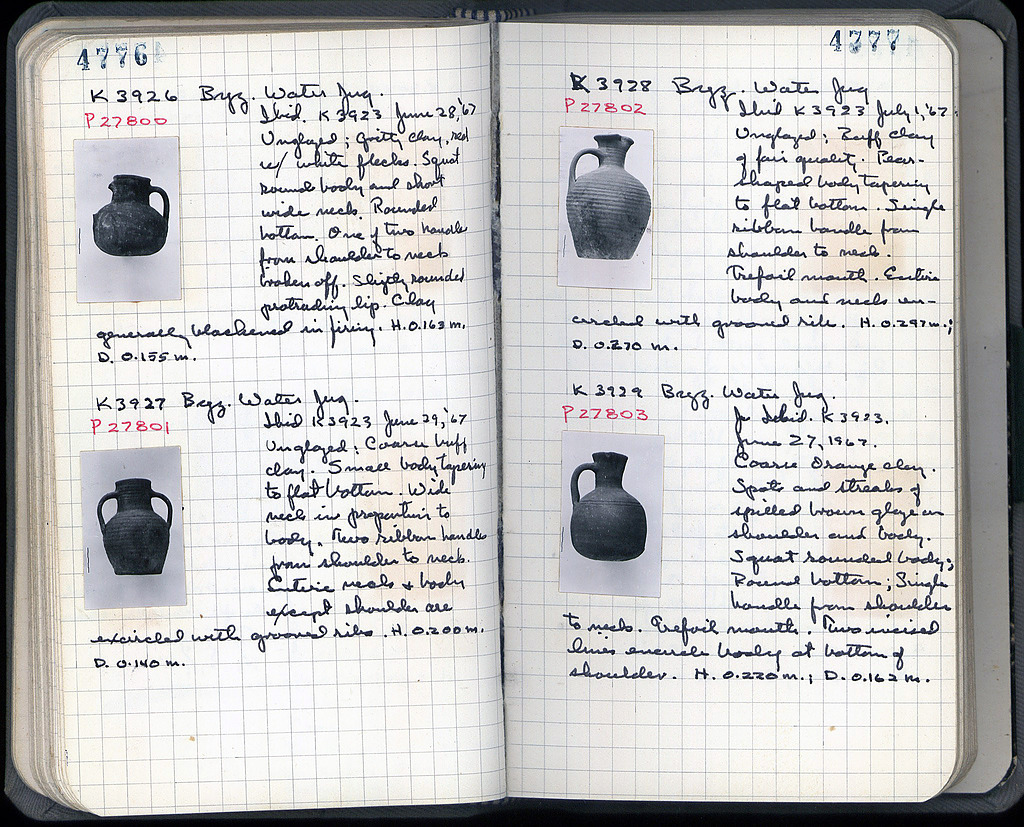 4776
K 3926 Byz. Water Jug.
P 27800
Ibid. K 3923 June 28, '67
Unglazed; Gritty clay, red
w/ white flecks. Squat
round body and short
wide neck. Rounded
bottom. One of two handles
from shoulder to neck
broken off. Slightly rounded
protruding lip. Clay
generally blackened in firing. H. 0.163 m.
D. 0.155 m.
K 3927 Byz. Water Jug.
P 27801
Ibid K 3923 June 29, '67
Unglazed; Coarse buff
clay. Small body tapering
to flat bottom. Wide
neck in proportion to
body. Two ribbon handles
from shoulder to neck.
Entire neck & body
except shoulder are
encircled with grooved ribs. H. 0.200 m.
D. 0.140 m.
4777
K 3928 Byz. Water Jug
P 27802
Ibid K 3923 July 1, '67.
Unglazed; Buff clay
of fair quality. Pear-
shaped body tapering
to flat bottom. Single
ribbon handle from
shoulder to neck.
Trefoil mouth. Entire
body and neck en-
circled with grooved rib. H. 0.297 m.;
D. 0.270 m.
K 3929 Byz. Water Jug.
P 27803
Ibid. K 3923.
June 27, 1967.
Coarse Orange clay.
Spots and streaks of
spilled brown glaze on
shoulder and body.
Squat rounded body;
Round bottom; Single
handle from shoulder
to neck. Trefoil mouth. Two incised
lines encircle body at bottom of
shoulder. H. 0.220 m.; D. 0.162 m.